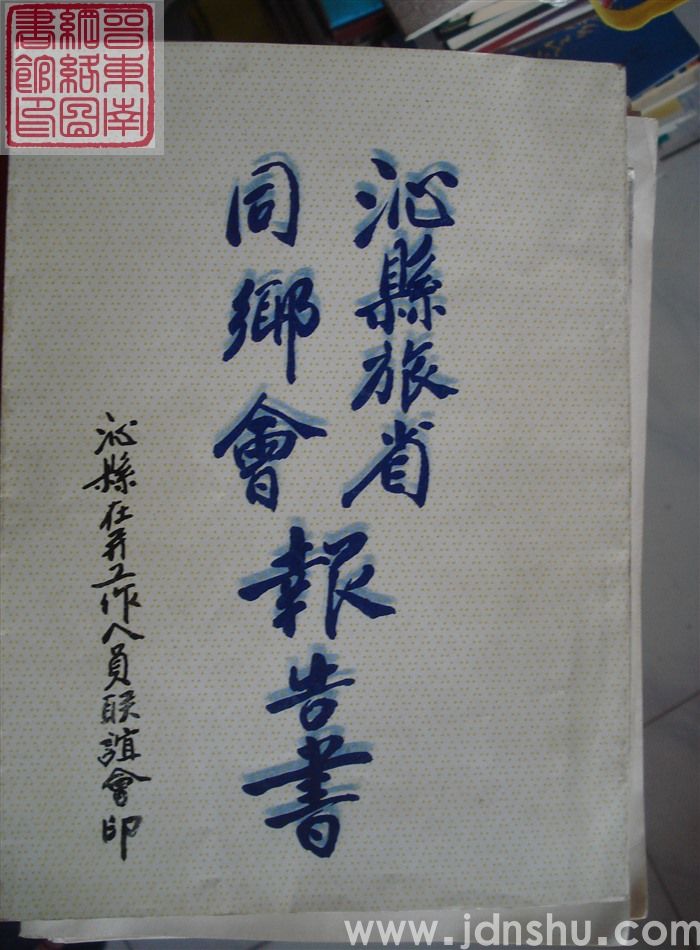 沁縣旅省
同鄉會
報告書
沁縣在并工作人員联誼會印
晉東南
網絡圖
書館印
www.jdnshu.com